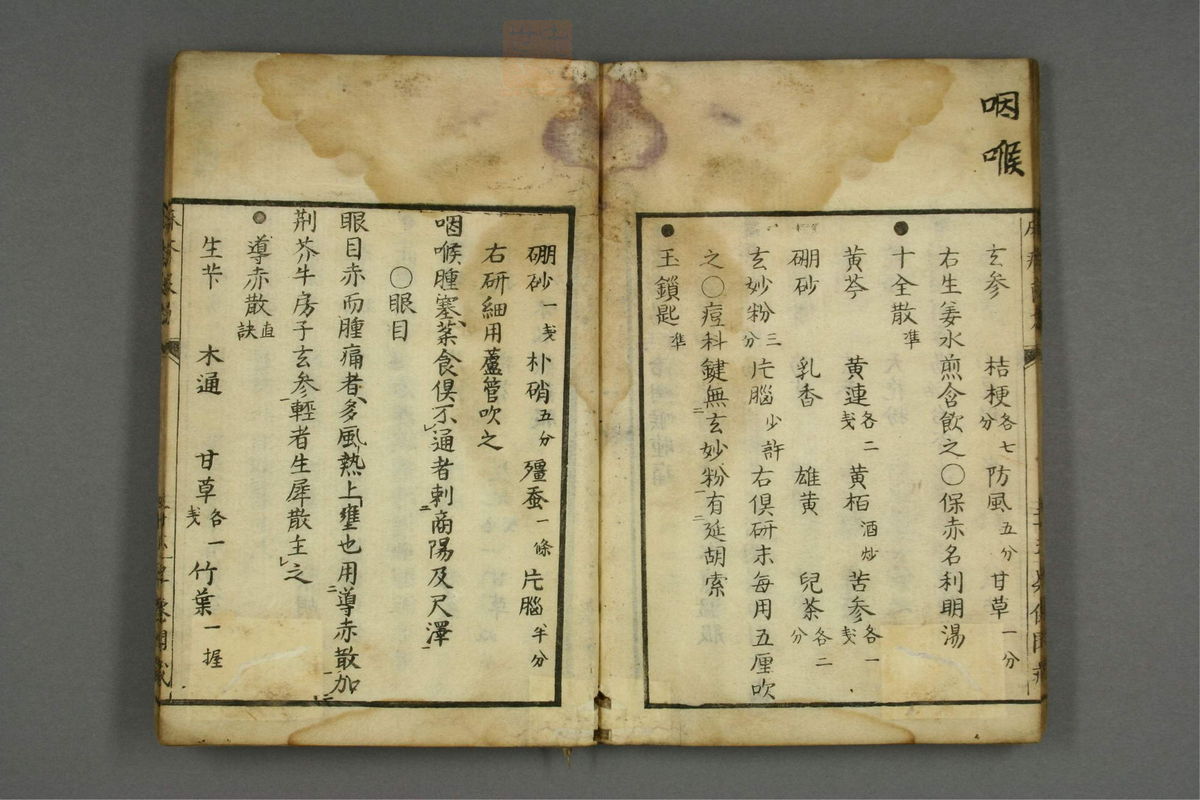 咽喉
玄参 桔梗各七分 防風五分 甘草一分
右生姜水煎含飲之〇保赤名利明湯
●十全散準
黄芩 黄連各二戔 黄栢酒炒 苦参各一戔
硼砂 乳香 雄黄 兒茶各二分
玄妙粉三分 片腦少許 右俱研末每用五厘吹
之〇痘科鍵無二玄妙粉一有二延胡索
●玉鎖匙準
硼砂一戔 朴硝五分 殭蚕一條 片腦半分
右研細用蘆管吹之
咽喉腫塞藥食俱不通者刺二商陽及尺澤一
〇眼目
眼目赤而腫痛者多風熱上壅也用二導赤散加
荆芥牛房子玄参一輕者生犀散主之
●導赤散直訣
生芐 木通 甘草各一戔 竹葉一握